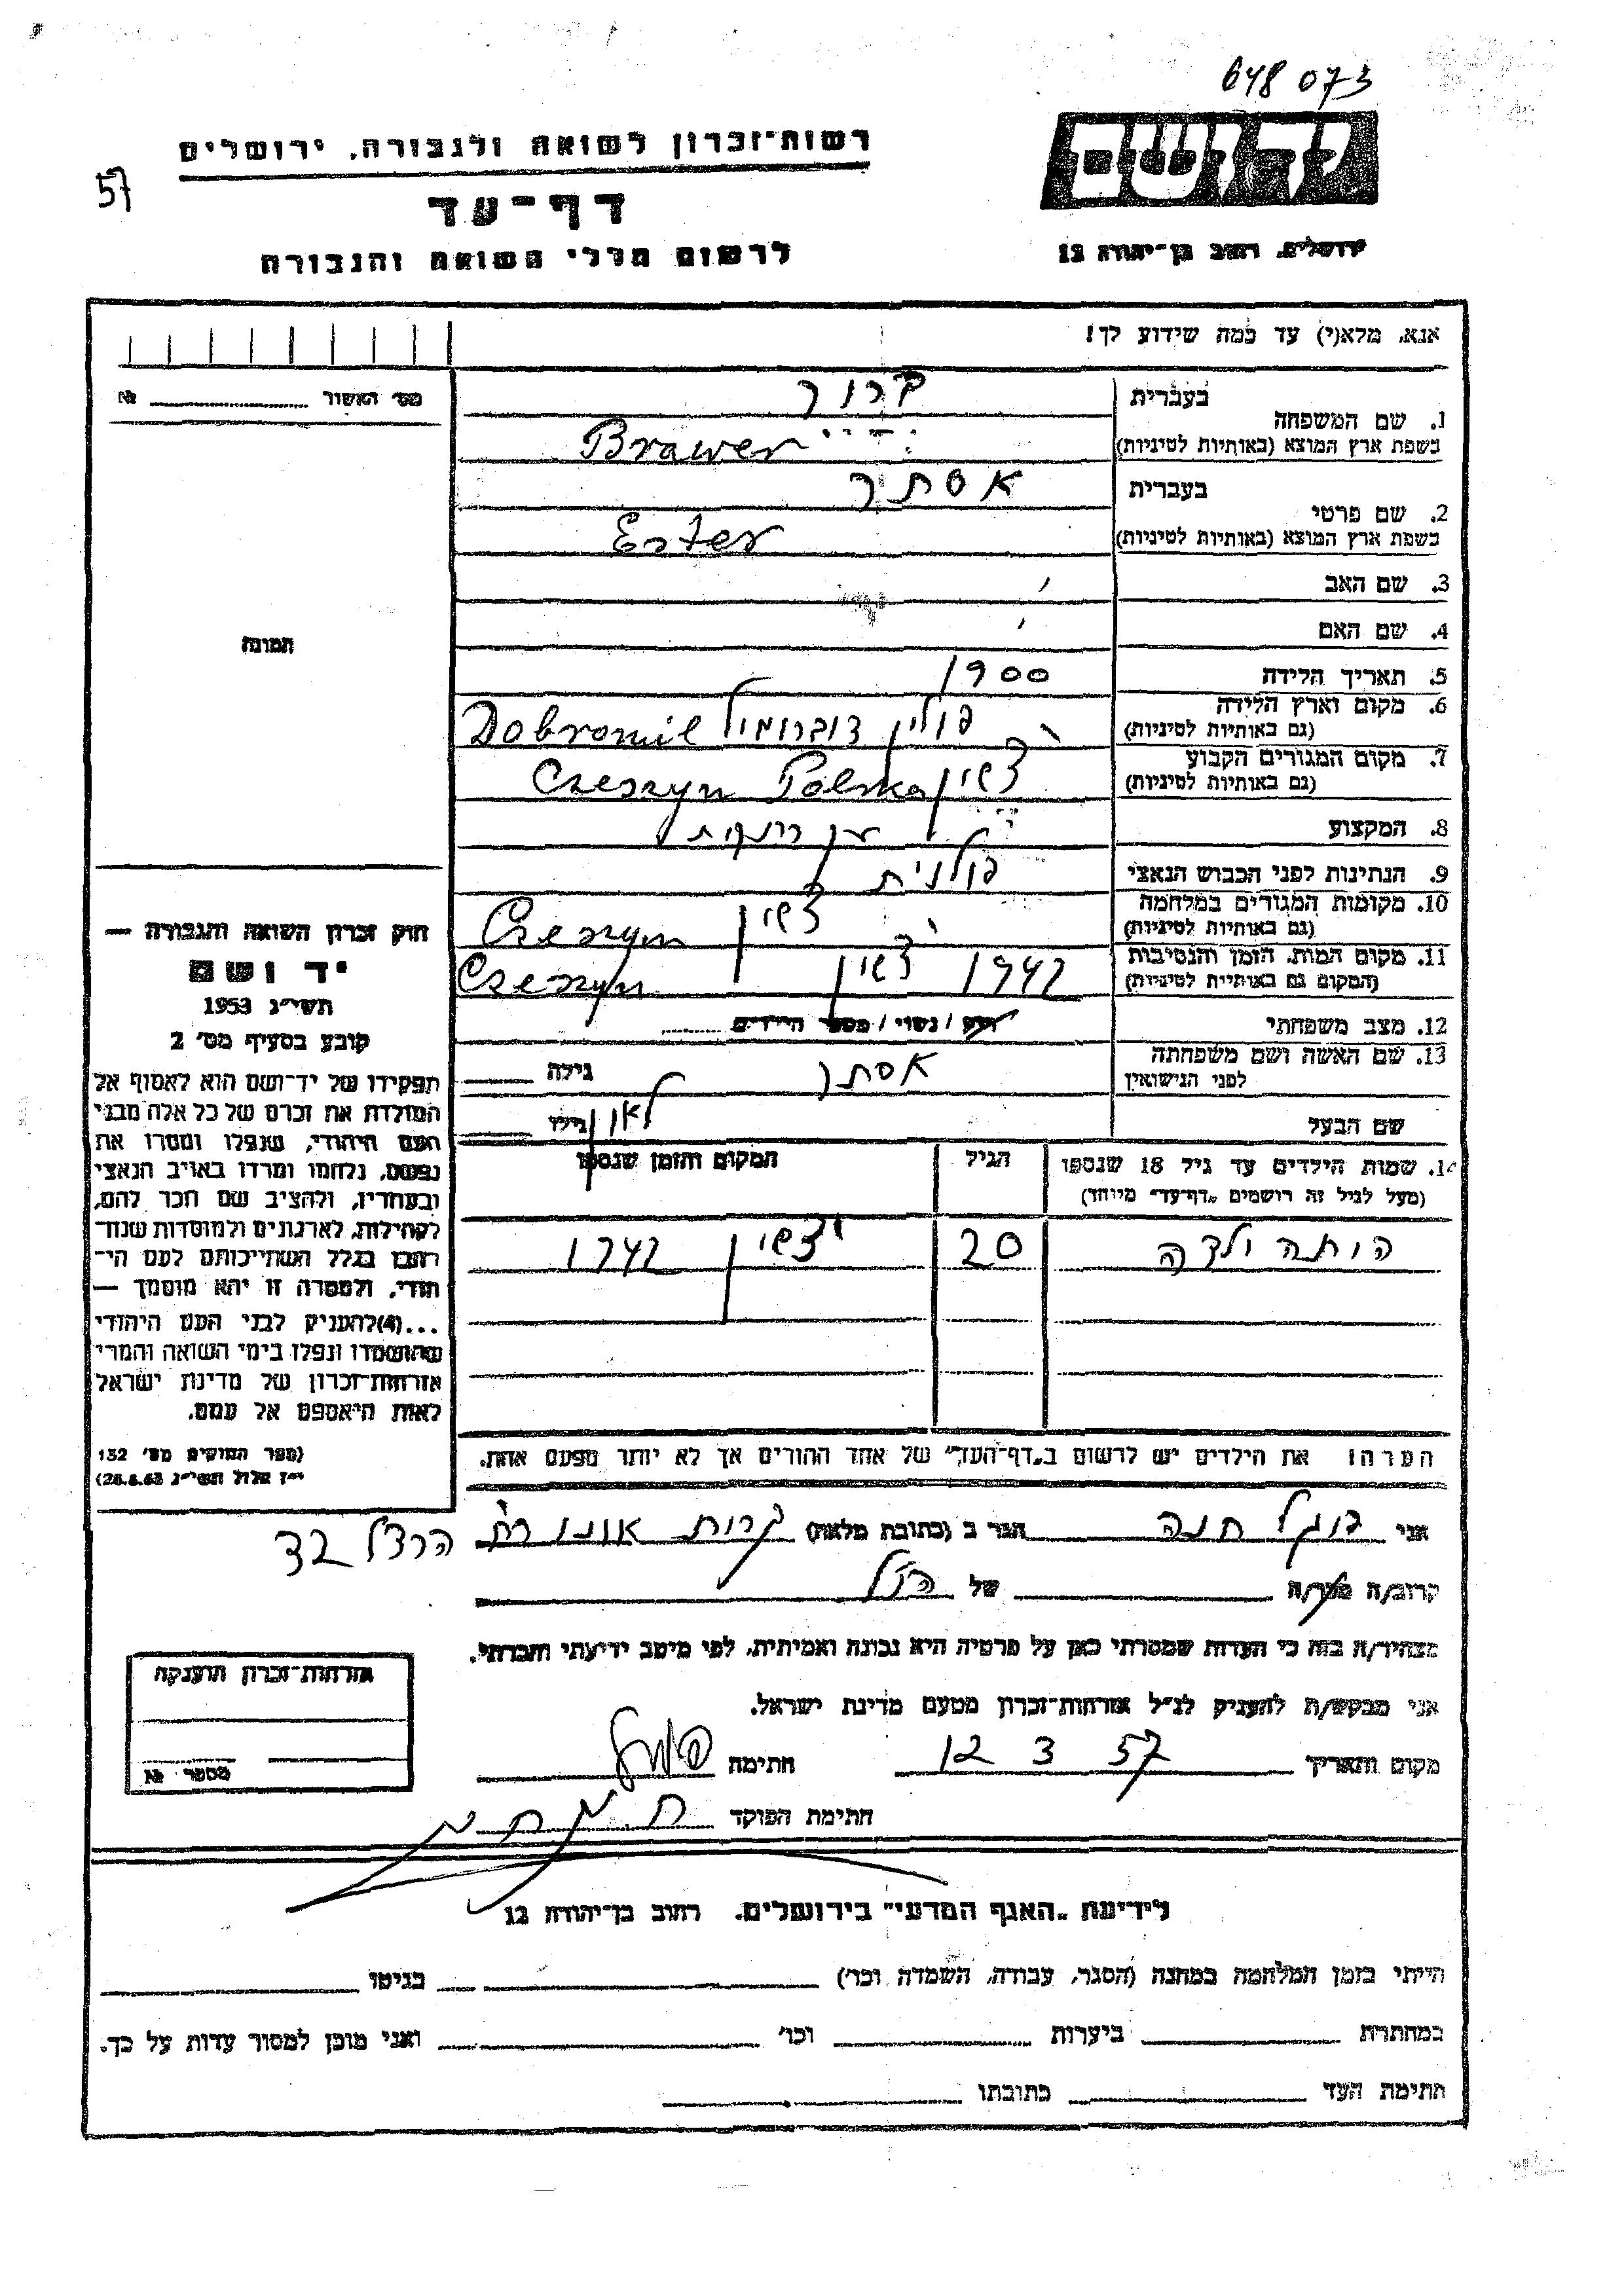 648 073
יד ושם
ירושלים, רחוב בן־יהודה 12
רשות־זכרון לשואה ולגבורה, ירושלים
57
דף־עד
לרשום חללי השואה והגבורה
אנא, מלא(י) עד כמה שידוע לך!
מס׳ האשור № 
בעברית
1. שם המשפחה
בשפת ארץ המוצא (באותיות לטיניות)
ברור
Brawer
בעברית
2. שם פרטי
בשפת ארץ המוצא (באותיות לטיניות)
אסתר
Ester
3. שם האב
4. שם האם
5. תאריך הלידה 1900
6. מקום וארץ הלידה
(גם באותיות לטיניות)
פולין דוברומיל Dobromil
7. מקום המגורים הקבוע
(גם באותיות לטיניות)
צשין Czeszyn Polska
8. המקצוע
9. הנתינות לפני הכבוש הנאצי פולנית
10. מקומות המגורים במלחמה
(גם באותיות לטיניות)
צשין Czeszyn
11. מקום המות, הזמן והנסיבות
(המקום גם באותיות לטיניות)
1942 צשין Czeszyn
12. מצב משפחתי רוק / נשוי / מספר הילדים
13. שם האשה ושם משפחתה
לפני הנישואין
אסתר גילה
שם הבעל לאון גילו
14. שמות הילדים עד גיל 18 שנספו
(מעל לגיל זה רושמים „דף־עד״ מיוחד)
הגיל
המקום והזמן שנספו
20 צשין 1942
הערה! את הילדים יש לרשום ב„דף־העד״ של אחד ההורים אך לא יותר מפעם אחת.
תמונה
חוק זכרון השואה והגבורה —
יד ושם
תשי״ג 1953
קובע בסעיף מס׳ 2
תפקידו של יד־ושם הוא לאסוף אל
המולדת את זכרם של כל אלה מבני
העם היהודי, שנפלו ומסרו את
נפשם, נלחמו ומרדו באויב הנאצי
ובעוזריו, ולהציב שם וזכר להם,
לקהילות, לארגונים ולמוסדות שנח־
רבו בגלל השתייכותם לעם הי־
הודי, ולמטרה זו יהא מוסמך —
...(4)להעניק לבני העם היהודי
שהושמדו ונפלו בימי השואה והמרי
אזרחות־זכרון של מדינת ישראל
לאות היאספם אל עמם.
(ספר החוקים מס׳ 132
י״ז אלול תשי״ג 28.8.53)
אני חנה הגר ב (כתובת מלאה) קרית אונו רח׳ הרצל 24
קרוב/ה מכר/ה של הנ״ל
מצהיר/ה בזה כי העדות שמסרתי כאן על פרטיה היא נכונה ואמיתית, לפי מיטב ידיעתי והכרתי.
אני מבקש/ת להעניק לנ״ל אזרחות־זכרון מטעם מדינת ישראל.
מקום ותאריך 12 3 57 חתימה
חתימת הפוקד
אזרחות־זכרון הוענקה
מספר №
לידיעת „האגף המדעי״ בירושלים, רחוב בן־יהודה 12
הייתי בזמן המלחמה במחנה (הסגר, עבודה, השמדה וכו׳) בגיטו
במחתרת ביערות וכו׳ ואני מוכן למסור עדות על כך.
חתימת העד כתובתו